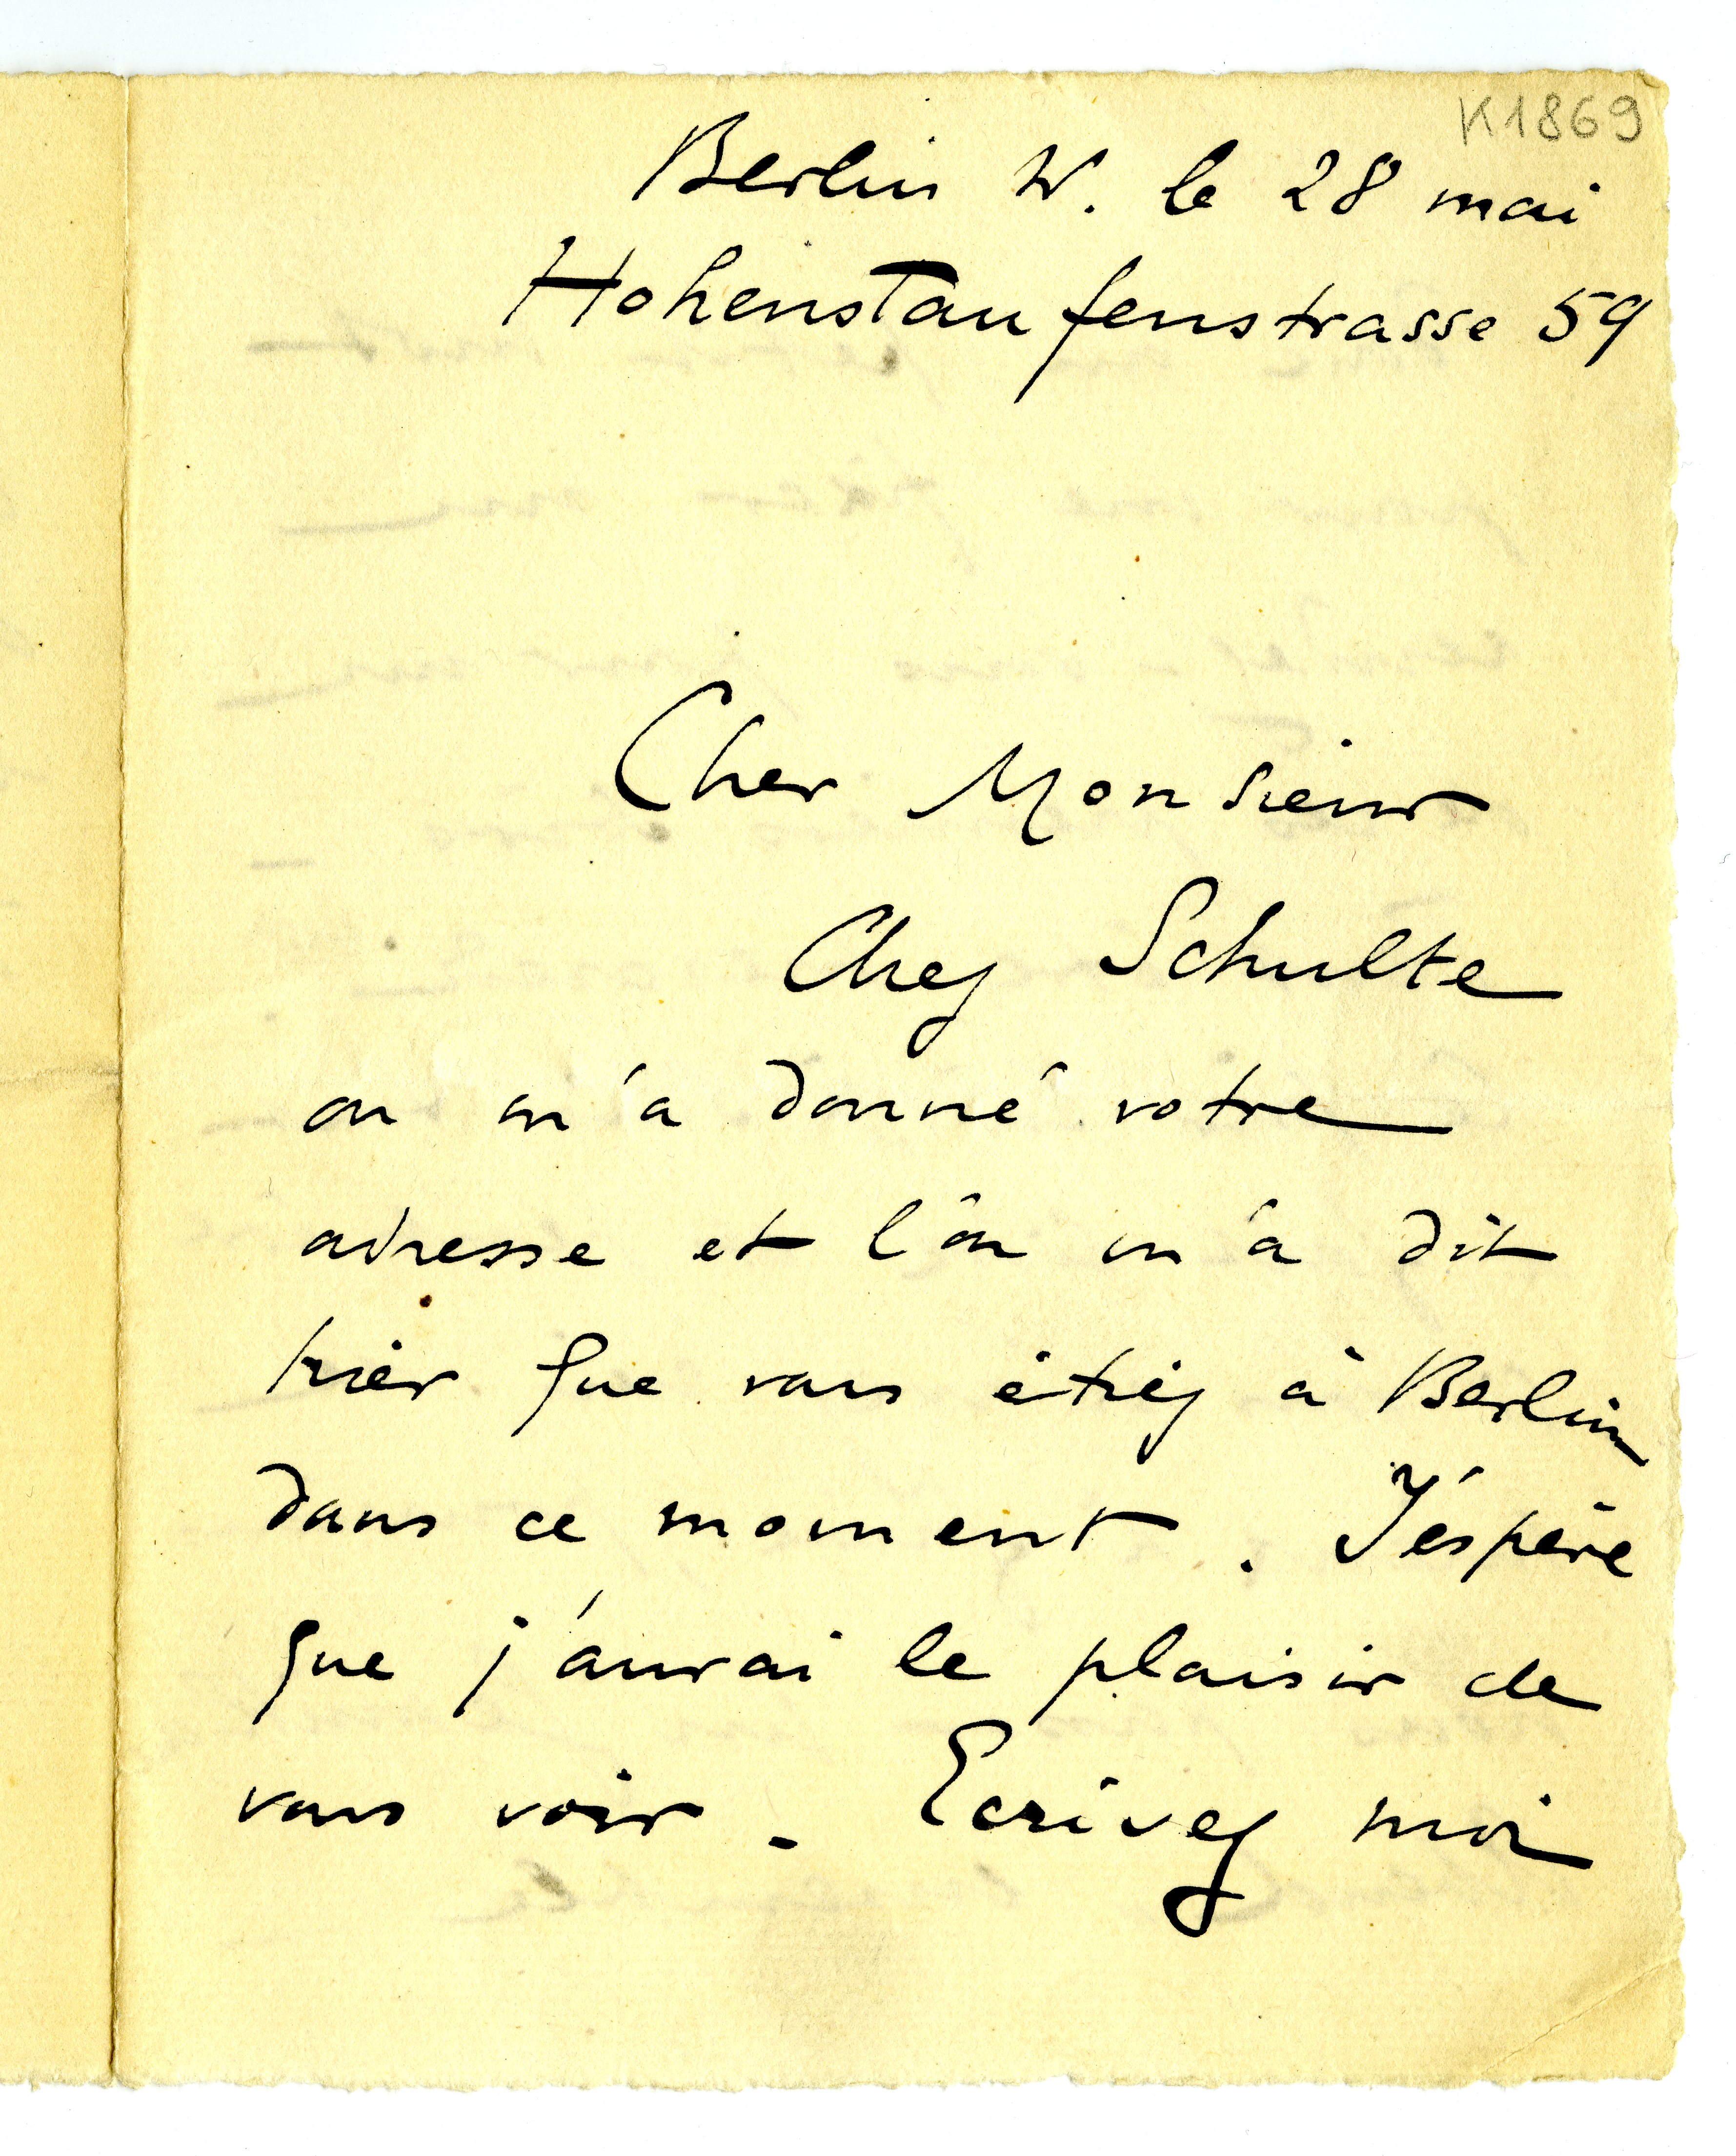 K1869
Berlin W. le 28 mai
Hohenstaufenstrasse 59
Cher Monsieur
Chez Schulte
on m'a donné votre
adresse et l'on m'a dit
hier que vous étiez à Berlin
dans ce moment. J'éspère
que j'aurai le plaisir de
vous voir. Ecrivez moi